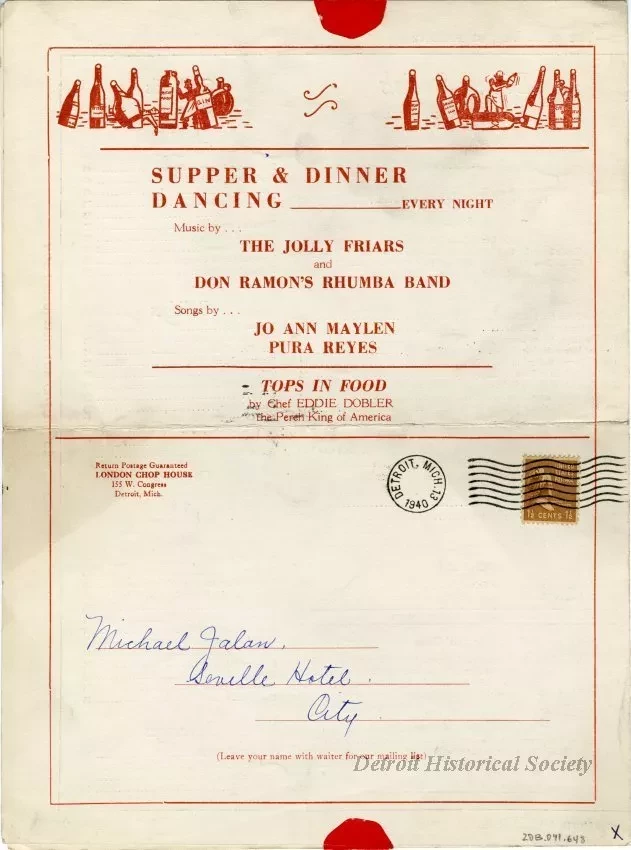 GIN
SUPPER & DINNER
DANCING EVERY NIGHT
Music by . . .
THE JOLLY FRIARS
and
DON RAMON'S RHUMBA BAND
Songs by . . .
JO ANN MAYLEN
PURA REYES
TOPS IN FOOD
by Chef EDDIE DOBLER
the Perch King of America
Return Postage Guaranteed
LONDON CHOP HOUSE
155 W. Congress
Detroit, Mich.
DETROIT, MICH. 13
1940
1½ CENTS 1½
Michael Jalan.
Seville Hotel.
City
(Leave your name with waiter for our mailing list)
Detroit Historical Society
X